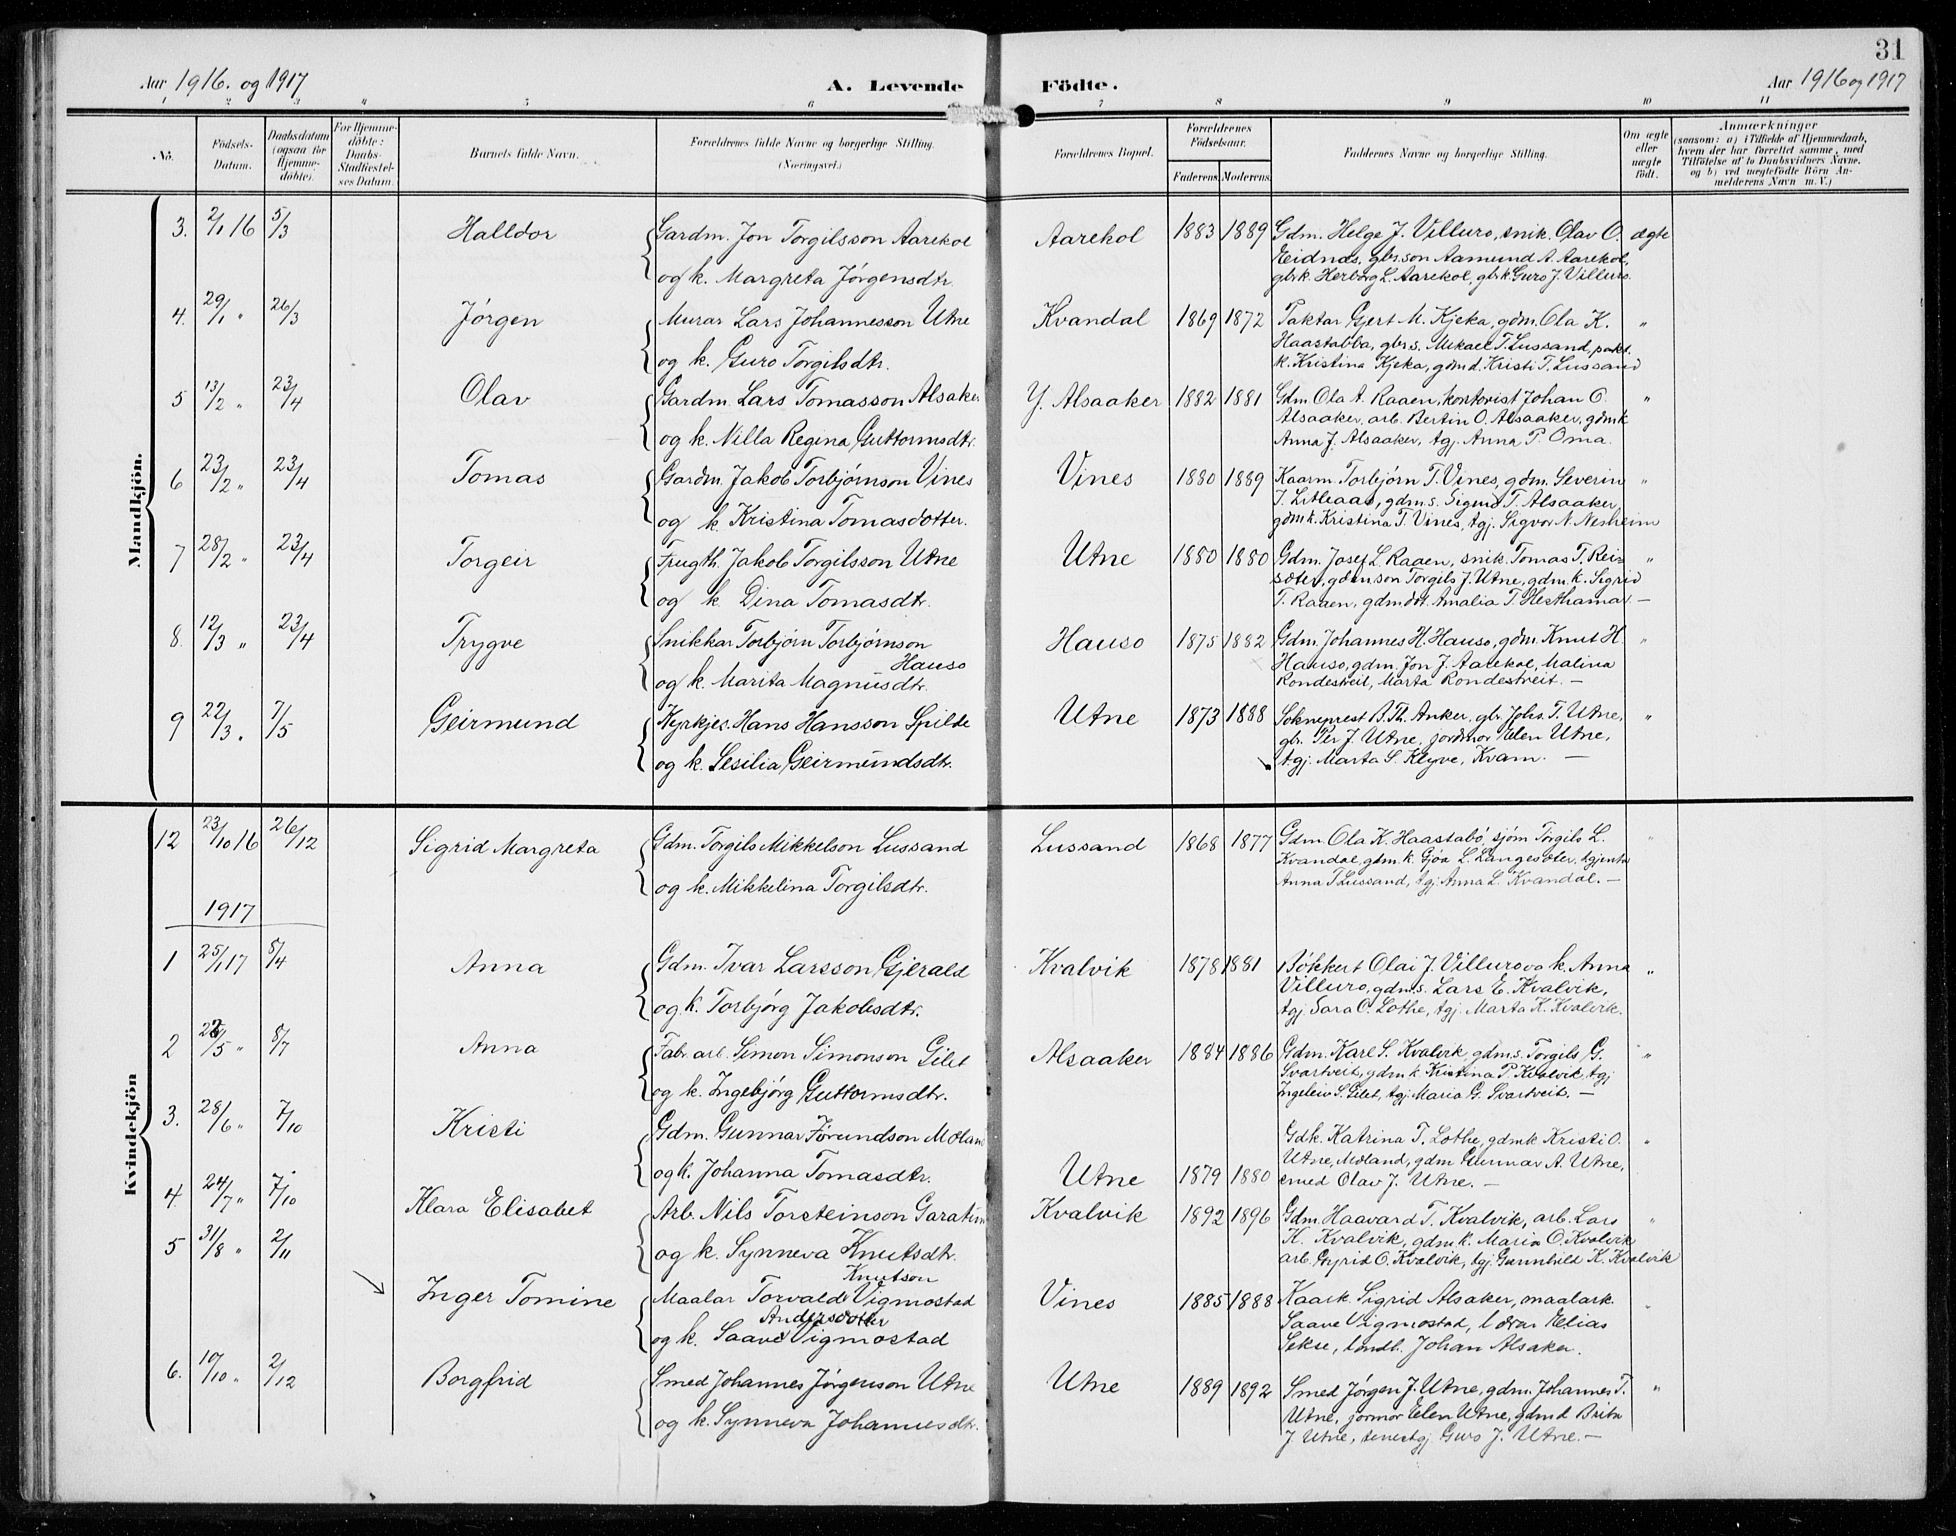 31
Aar 1916. og 1917
A. Levende
Födte.
Aar 1916 og 1917
1 2 3 4 5 6 7 8 9 10 11
No.
Födsels-Datum.
Daabsdatum (ogsaa for Hjemmedöbte).
For Hjemmedöbte: Daabs-Stadfæstelses Datum
Barnets fulde Navn.
Forældrenes fulde Navne og borgerlige Stilling.
(Næringsvei.)
Forældrenes Bopæl.
Forældrenes Födselsaar.
Faderens. Moderens.
Faddernes Navne og borgerlige Stilling.
Om ægte eller uægte födt.
Anmærkninger
(saasom: a) i Tilfælde af Hjemmedaab, hvem der har forrettet samme, med Tilföielse af to Daabsvidners Navne. og b) ved uægtefödte Börn Anmelderens Navn m. V.)
Mandkjön.
3. 2/1 16 5/3 Halldor Gardm. Jon Torgilsson Aarekol Aarekol 1883 1889 Gdm. Helge J. Villuro, snik. Olav O. ægte
Eidnes, gbr.son Aamund A. Aarekol,
og k. Margreta Jørgensdtr. gbrk. Herborg L. Aarekol, gbrk Guro J. Villuro.
4. 29/1 " 26/3 Jørgen Murar Lars Johannesson Utne Kvandal 1869 1872 Taktar Gjert M. Kjeka, gdm. Ola K. "
Haastabba, gbr.s. Mikael T. Lussand, pakt.
og k. Guro Torgilsdtr. k. Kristina Kjeka, gdmd. Kristi T. Lussand
5 13/2 " 23/4 Olav Gardm. Lars Tomasson Alsaker Y. Alsaaker 1882 1881 Gdm Ola A. Raaen, kontorist Johan O. "
Alsaaker, arb. Bertin O. Alsaaker, gdmk
og k. Nilla Regina Guttormsdtr. Anna J. Alsaaker, tgj. Anna P. Oma.
6 23/2 " 23/4 Tomas Gardm. Jakob Torbjørnson Vines Vines 1880 1889 Kaarm Torbjørn T. Vines, gdm. Severin "
gdm.s. Sigurd T. Alsaaker,
og k. Kristina Tomasdotter. gdmk. Kristina T. Vines, tgj. Sigvor N. Nesheim
7 28/2 " 23/4 Torgeir Frugth. Jakob Torgilsson Utne Utne 1880 1880 Gdm. Josef L. Raaen, snik. Tomas T. Rei- "
sæter, gdmson Torgils J. Utne, gdm.k. Sigrid
og k Dina Tomasdtr. T. Raaen, gdmdt. Amalia T. Hesthamar. —
8. 12/3 " 23/4 Trygve Snikkar Torbjørn Torbjørnson Hauso 1875 1882 Gdm. Johannes H. Hauso, gdm. Knut H. "
Hauso Hauso, gdm. Jon J. Aarekol, Malina
og k. Marita Magnusdtr. Rondestveit, Marta Rondestveit. —
9 22/3 " 7/5 Geirmund Kyrkjes. Hans Hansson Spilde Utne 1873 1888 Sokneprest B. Th. Anker, gbr. Johs. T. Utne, "
gbr. Per J. Utne, jordmor Elen Utne,
og k. Sesilia Geirmundsdtr. tgj. Marta S. Klyve, Kvam. —
Kvindekjön
12 23/10 16 26/12 Sigrid Margreta Gdm. Torgils Mikkelson Lussand Lussand 1868 1877 Gdm. Ola K. Haastabø, sjøm Torgils L. "
Kvandal, gdm.k. Gjøa L. Langesæter, tgjenta
og k. Mikkelina Torgilsdtr. Anna T Lussand, tgj. Anna L. Kvandal. —
1917
1 25/1 17 8/4 Anna Gdm. Ivar Larsson Gjerald Kvalvik 1878 1881 Bøkkert Olai J. Villuro o k. Anna "
Villuro, gdm.s. Lars E. Kvalvik,
og k. Torbjørg Jakobsdtr. tgj Sara O. Lothe, tgj. Marta K. Kvalvik.
2 /5 " 8/7 Anna Fabr. arb. Simon Simonson Gilet Alsaaker 1884 1886 Gdm. Karl S. Kvalvik, gdm.s. Torgils G. "
Svartveit, gdmk Kristina P. Kvalvik, tgj
og k. Ingebjørg Guttormsdtr. Ingeleiv S. Gilet, tgj. Maria G. Svartveit. —
3. 28/6 " 7/10 Kristi Gdm. Gunnar Jørundson Mæland Gdk. Katrina T. Lothe, gdmk Kristi O. "
Utne, Mæland, gdm Gunnar A. Utne,
og k. Johanna Tomasdtr. Utne 1879 1880 smed Olav J. Utne. —
4. 24/7 " 7/10 Klara Elisabet Arb. Nils Torsteinson Garatun Kvalvik 1892 1896 Gdm. Haavard T. Kvalvik, arb. Lars "
K. Kvalvik, gdmk. Maria O. Kvalvik
5 31/8 " 2/11 og k. Synneva Knutsdtr. arb. Gyrid O. Kvalvik, tgj. Gunnhild K. Kvalvik
Knutson
Inger Tomine Maalar Torvald Vigmostad Vines 1885 1888 Kaark. Sigrid Alsaker, maalark. "
Andersdotter Saave Vigmostad, lærar Elias
og k. Saave Vigmostad Sekse, Johan Alsaker.
6. 10/10 " 2/12 Borgfrid Smed Johannes Jørgenson Utne Utne 1889 1892 Smed Jørgen J. Utne, gdm. Johannes T. "
Utne, jormor Elen Utne, gdmd Brita
og k. Synneva Johannesdtr. J Utne, tenestgj Guro J. Utne. —